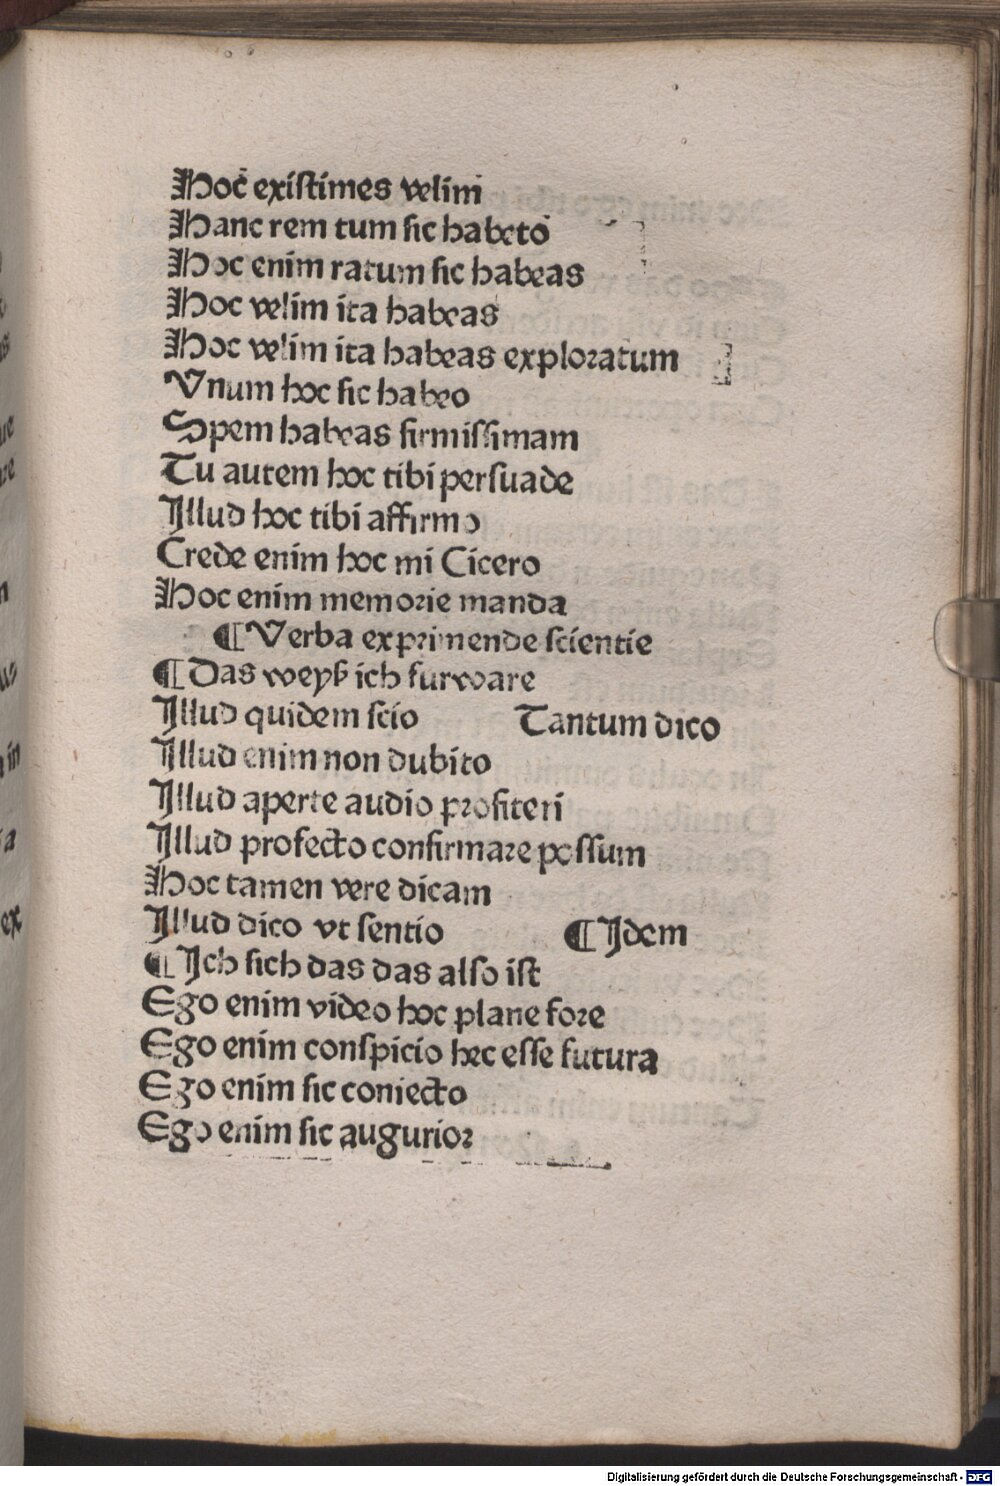 Hoc existimes velim
Hanc rem tum sic habeto
Hoc enim ratum sic habeas
Hoc velim ita habeas
Hoc velim ita habeas exploratum
Unum hoc sic habeo
Spem habeas firmissimam
Tu autem hoc tibi persuade
Illud hoc tibi affirmo
Crede enim hoc mi Cicero
Hoc enim memorie manda
¶ Verba exprimende scientie
¶ Das weyß ich furware
Illud quidem scio Tantum dico
Illud enim non dubito
Illud aperte audio profiteri
Illud profecto confirmare possum
Hoc tamen vere dicam
Illud dico vt sentio ¶ Idem
¶ Ich sich das das also ist
Ego enim video hoc plane fore
Ego enim conspicio hec esse futura
Ego enim sic coniecto
Ego enim sic augurior
Digitalisierung gefördert durch die Deutsche Forschungsgemeinschaft - DFG